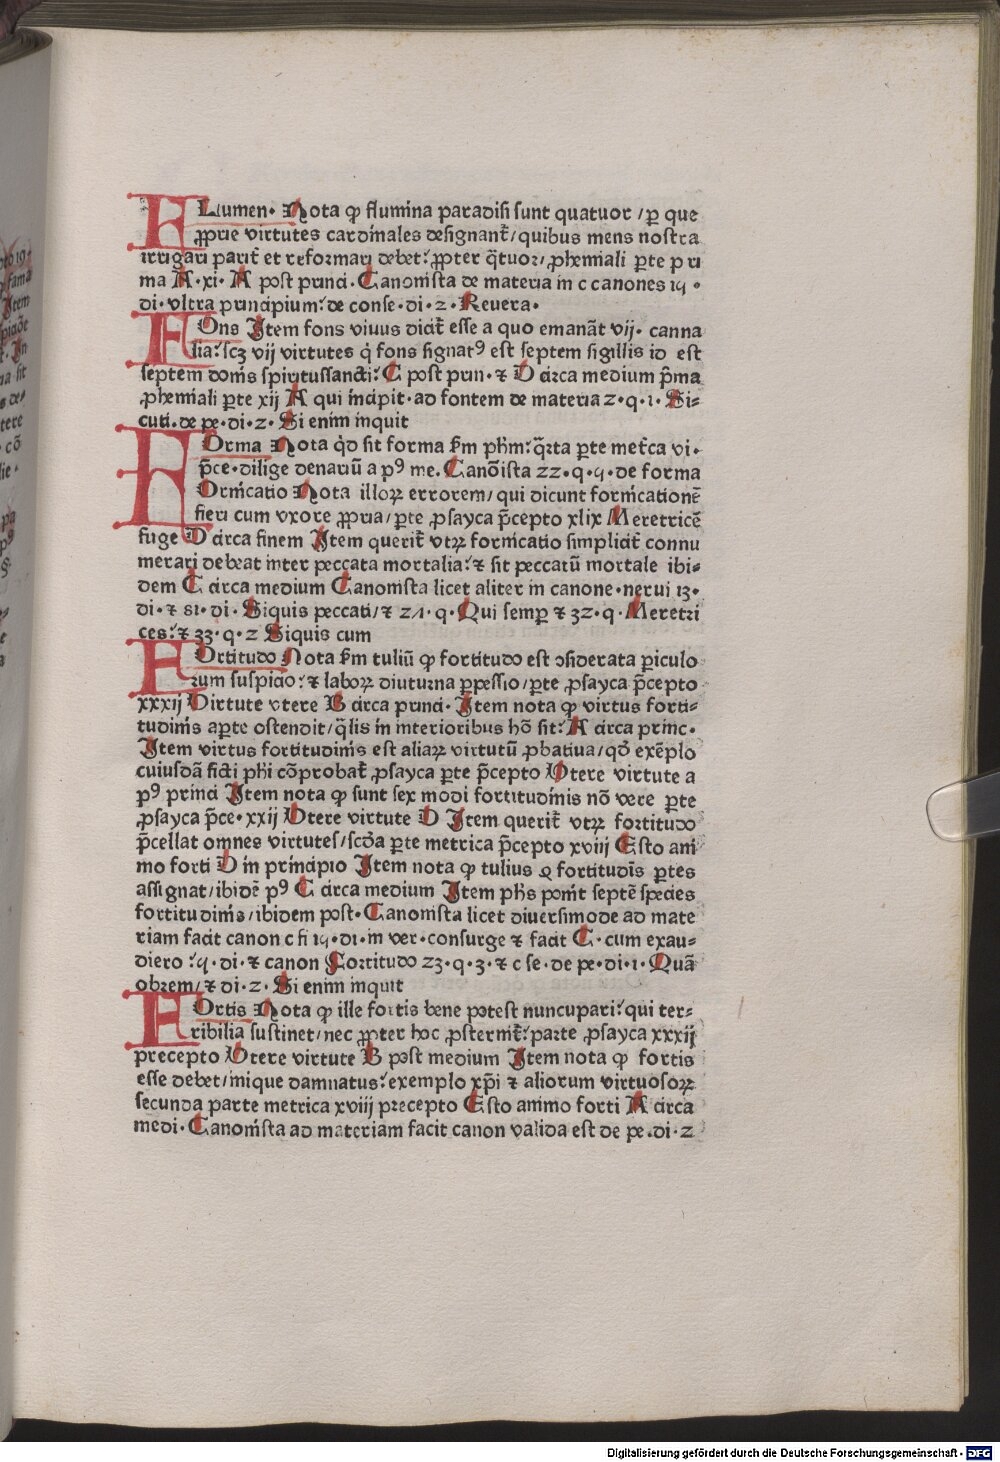 FLumen· Nota ꝙ flumina paradisi sunt quatuor / ꝑ que
ꝓprie virtutes cardinales designant̄ / quibus mens nostra
irrigari parit̄ et reformari debet: ꝓpter q̄tuor / ꝓhemiali ꝑte pri
ma A·xi· A post princi· Canonista de materia in c canones 19·
di· vltra principium: de conse·di·2·Reuera·
FOns Item fons viuus dicit̄ esse a quo emanāt vij· canna
lia: scꝫ vij virtutes q̇ fons signatꝰ est septem sigillis id est
septem donis spiritussancti: C post prin·⁊ D circa medium p̄ma
ꝓhemiali ꝑte xij A qui incipit·ad fontem de materia 2·q·1· Si-
cuti·de pe·di·2· Si enim inquit
FOrma Nota q̇d sit forma ẜm pħm: q̄rta ꝑte met̄ca vi·
p̄ce·dilige denariū a pꝰ me· Canōista 22·q·5·de forma
FOrnicatio Nota illoꝝ errorem / qui dicunt fornicationē
fieri cum vxore ꝓpria / ꝑte ꝓsayca p̄cepto xlix Meretricē
fuge D circa finem Item querit̄ vtꝝ fornicatio simplicit̄ connu
merari debeat inter peccata mortalia: ⁊ sit peccatū mortale ibi-
dem C circa medium Canonista licet aliter in canone·nerui 13·
di·⁊ 81·di· Siquis peccati / ⁊ 24·q·Qui semꝑ ⁊ 32·q·Meretri
ces: ⁊ 33·q·2 Siquis cum
FOrtitudo Nota ẜm tuliū ꝙ fortitudo est ↄsiderata ꝑiculo
rum suspicio: ⁊ laboꝝ diuturna ꝑpessio / ꝑte ꝓsayca p̄cepto
xxxij Virtute vtere B circa princi· Item nota ꝙ virtus forti-
tudinis aꝑte ostendit / q̄lis in interioribus hō sit: A circa princ·
Item virtus fortitudinis est aliaꝝ virtutū ꝓbatiua / qḋ exēplo
cuiusdā ficti phi cōprobat̄ ꝓsayca ꝑte p̄cepto Vtere virtute a
pꝰ princi Item nota ꝙ sunt sex modi fortitudinis nō vere ꝑte
ꝓsayca p̄ce·xxij Vtere virtute D Item querit̄ vtꝝ fortitudo
p̄cellat omnes virtutes / scḋa ꝑte metrica p̄cepto xviij Esto ani
mo forti D in principio Item nota ꝙ tulius ꝗ fortitudīs ꝑtes
assignat / ibidē pꝰ C circa medium Item pħs ponit septē species
fortitudinis / ibidem post·Canonista licet diuersimode ad mate
riam facit canon c fi 19·di·in ver·consurge ⁊ facit C·cum exau-
diero: 5·di·⁊ canon Fortitudo 23·q·3·⁊ c se·de pe·di·1·Quā
obrem / ⁊ di·2· Si enim inquit
FOrtis Nota ꝙ ille fortis bene potest nuncupari: qui ter-
ribilia sustinet / nec ꝓpter hoc ꝓsternit̄: parte ꝓsayca xxxij
precepto Vtere virtute B post medium Item nota ꝙ fortis
esse debet / inique damnatus: exemplo xp̄i ⁊ aliorum virtuosoꝝ
secunda parte metrica xviij precepto Esto animo forti A circa
medi·Canonista ad materiam facit canon valida est de pe·di·2
Digitalisierung gefördert durch die Deutsche Forschungsgemeinschaft - DFG